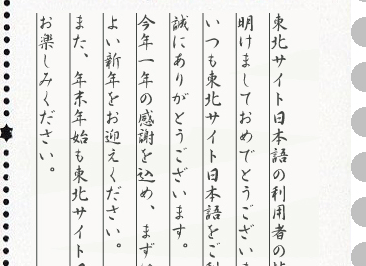 東北サイト日本語の利用者の
明けましておめでとうございま
いつも東北サイト日本語をご
誠にありがとうございます。
今年一年の感謝を込め、まず
よい新年をお迎えください。
また、年末年始も東北サイト
お楽しみください。